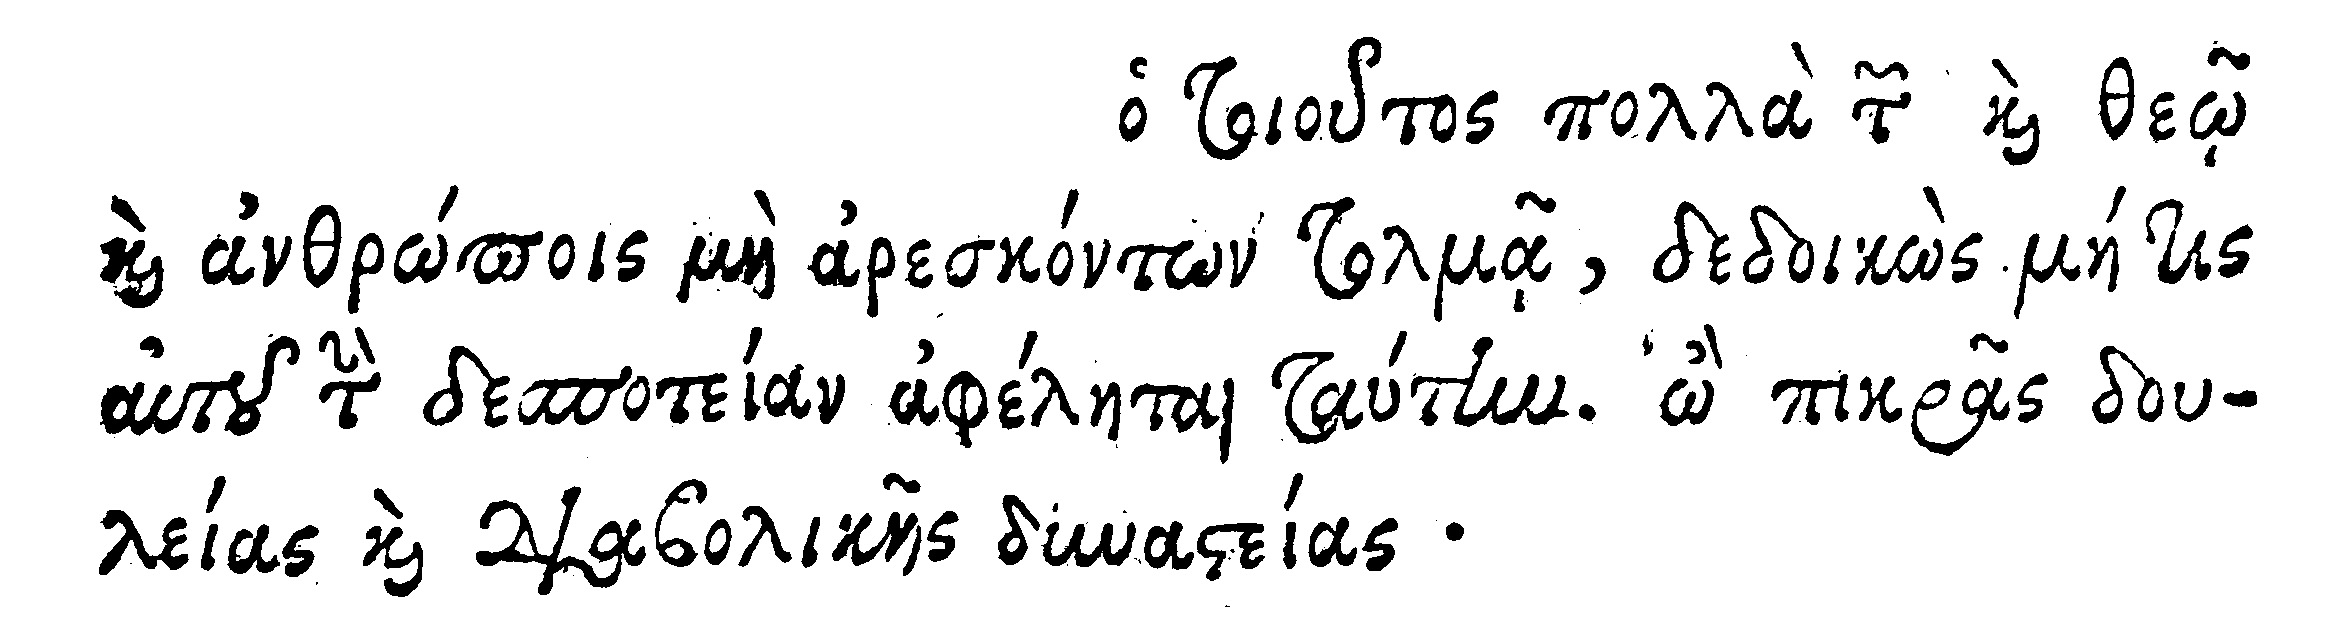 ὁ τοιοῦτος πολλὰ τῶν καὶ θεῷ
καὶ ἀνθρώποις μὴ ἀρεσκόντων τολμᾷ, δεδοικὼς μή τις
αὐτοῦ τὴν δεσποτείαν ἀφέληται ταύτην. ὢ πικρᾶς δου-
λείας καὶ διαβολικῆς δυναστείας.